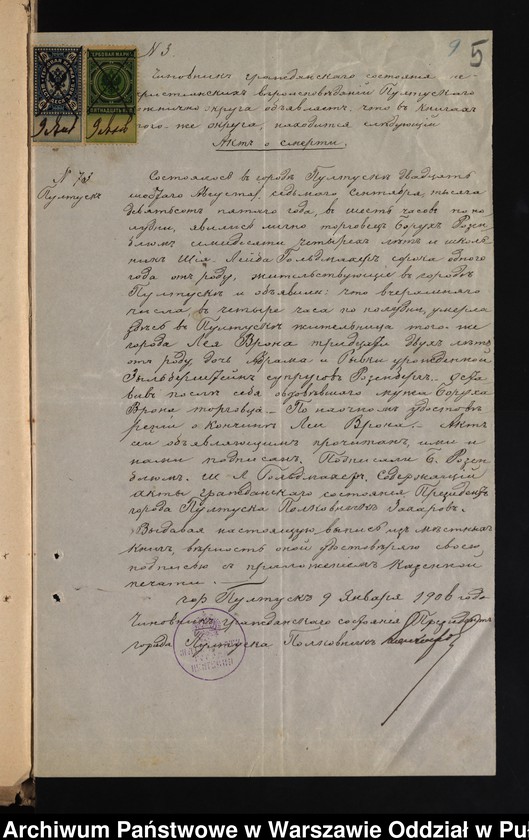 N 3.
9 5
Чиновник гражданскаго состоянія не-
христіанских вѣроисповѣданій Пултускаго
округа объявляет, что в книгах
того-же округа, находится следующій
Акт о смерти.
N 73
Пултуск
Состоялось в городѣ Пултускѣ двадцать
Августа, седьмого Сентября, тысяча
девятьсот пятаго года, в шесть часов по по-
лудни, явился лично торговец Борух Розен-
блюм семидесяти четырех лѣт и школь-
ник Шл. Лейба Гольдмахер сорока одного
года от роду, жительствующіе в городѣ
Пултускѣ и объявили: что вчерашняго
числа в четыре часа по полудни, умерла
здѣсь в Пултускѣ жительница того-же
города Лея Врона тридцати двух лѣт
от роду, дочь Абрама и Рывки урожденной
Зыльберштейн супругов Розенберг. Оста-
вив послѣ себя овдовѣвшаго мужа Боруха
Врона торговца. По наочном удостовѣ-
реніи о кончинѣ Леи Врона. Акт
сей объявляющим прочитан, ими и
нами подписан. Подписали Б. Розен-
блюм. Ш Л Гольдмахер. Содержащій
акты гражданскаго состоянія Президент
города Пултуска Полковник Захаров.
Выдавая настоящую выпись из мѣстных
книг, вѣрность оной удостовѣряю своею
подписью с приложеніем казенной
печати.
гор Пултуск 9 Января 1906 года
Чиновник гражданскаго состоянія Президент
города Пултуска Полковник
Archiwum Państwowe w Warszawie Oddział w Pu